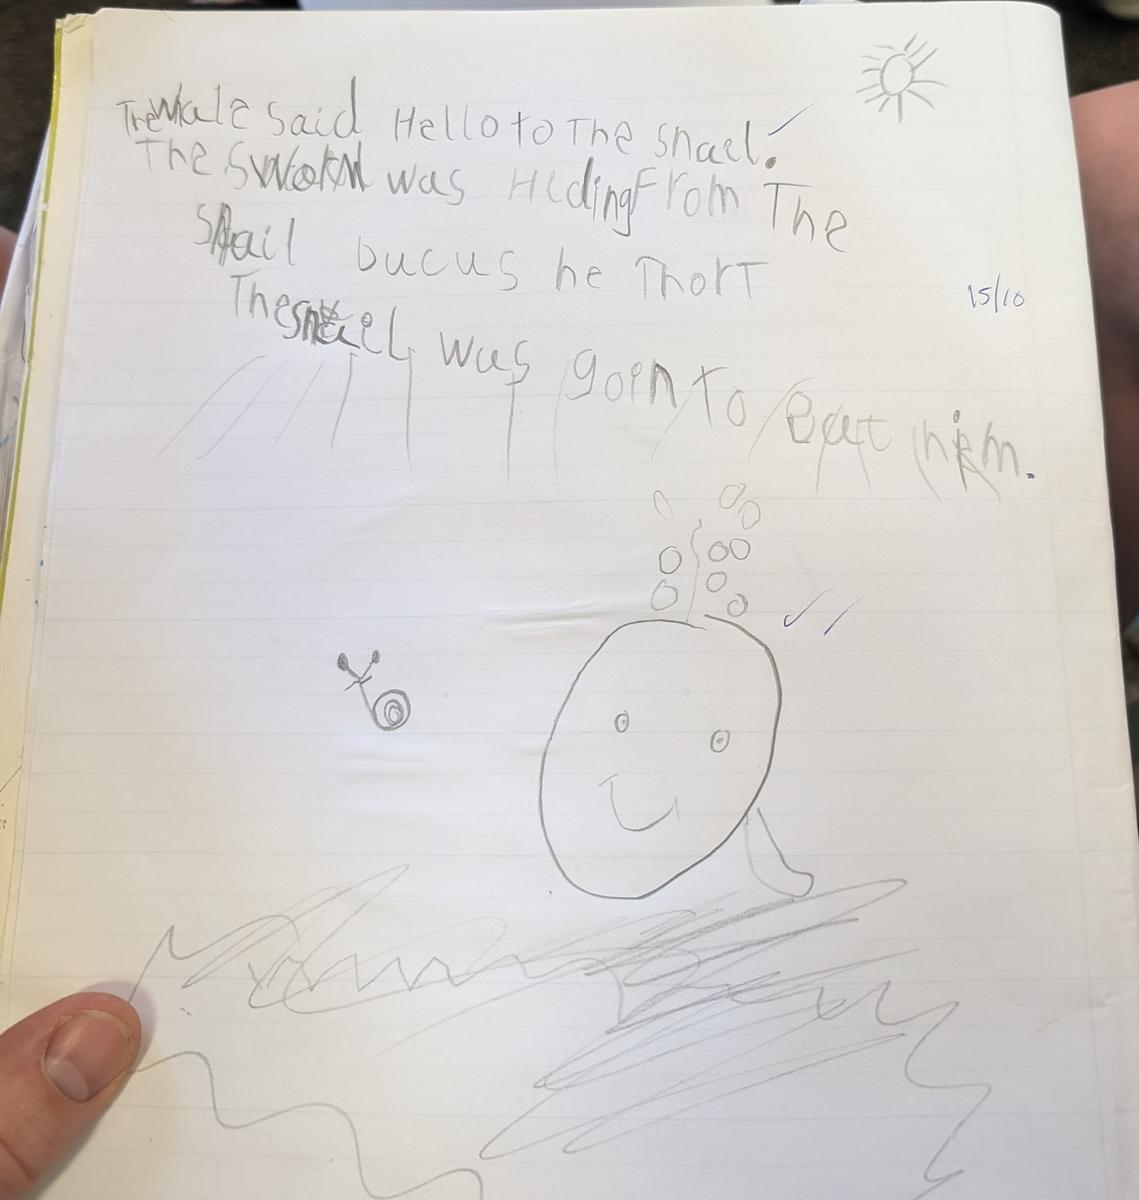 The Wale Said Hello to The Snael.
The SWOKM was HidingFrom The
Snail bucus he ThorT
The snael was goin To eat him.
15/10